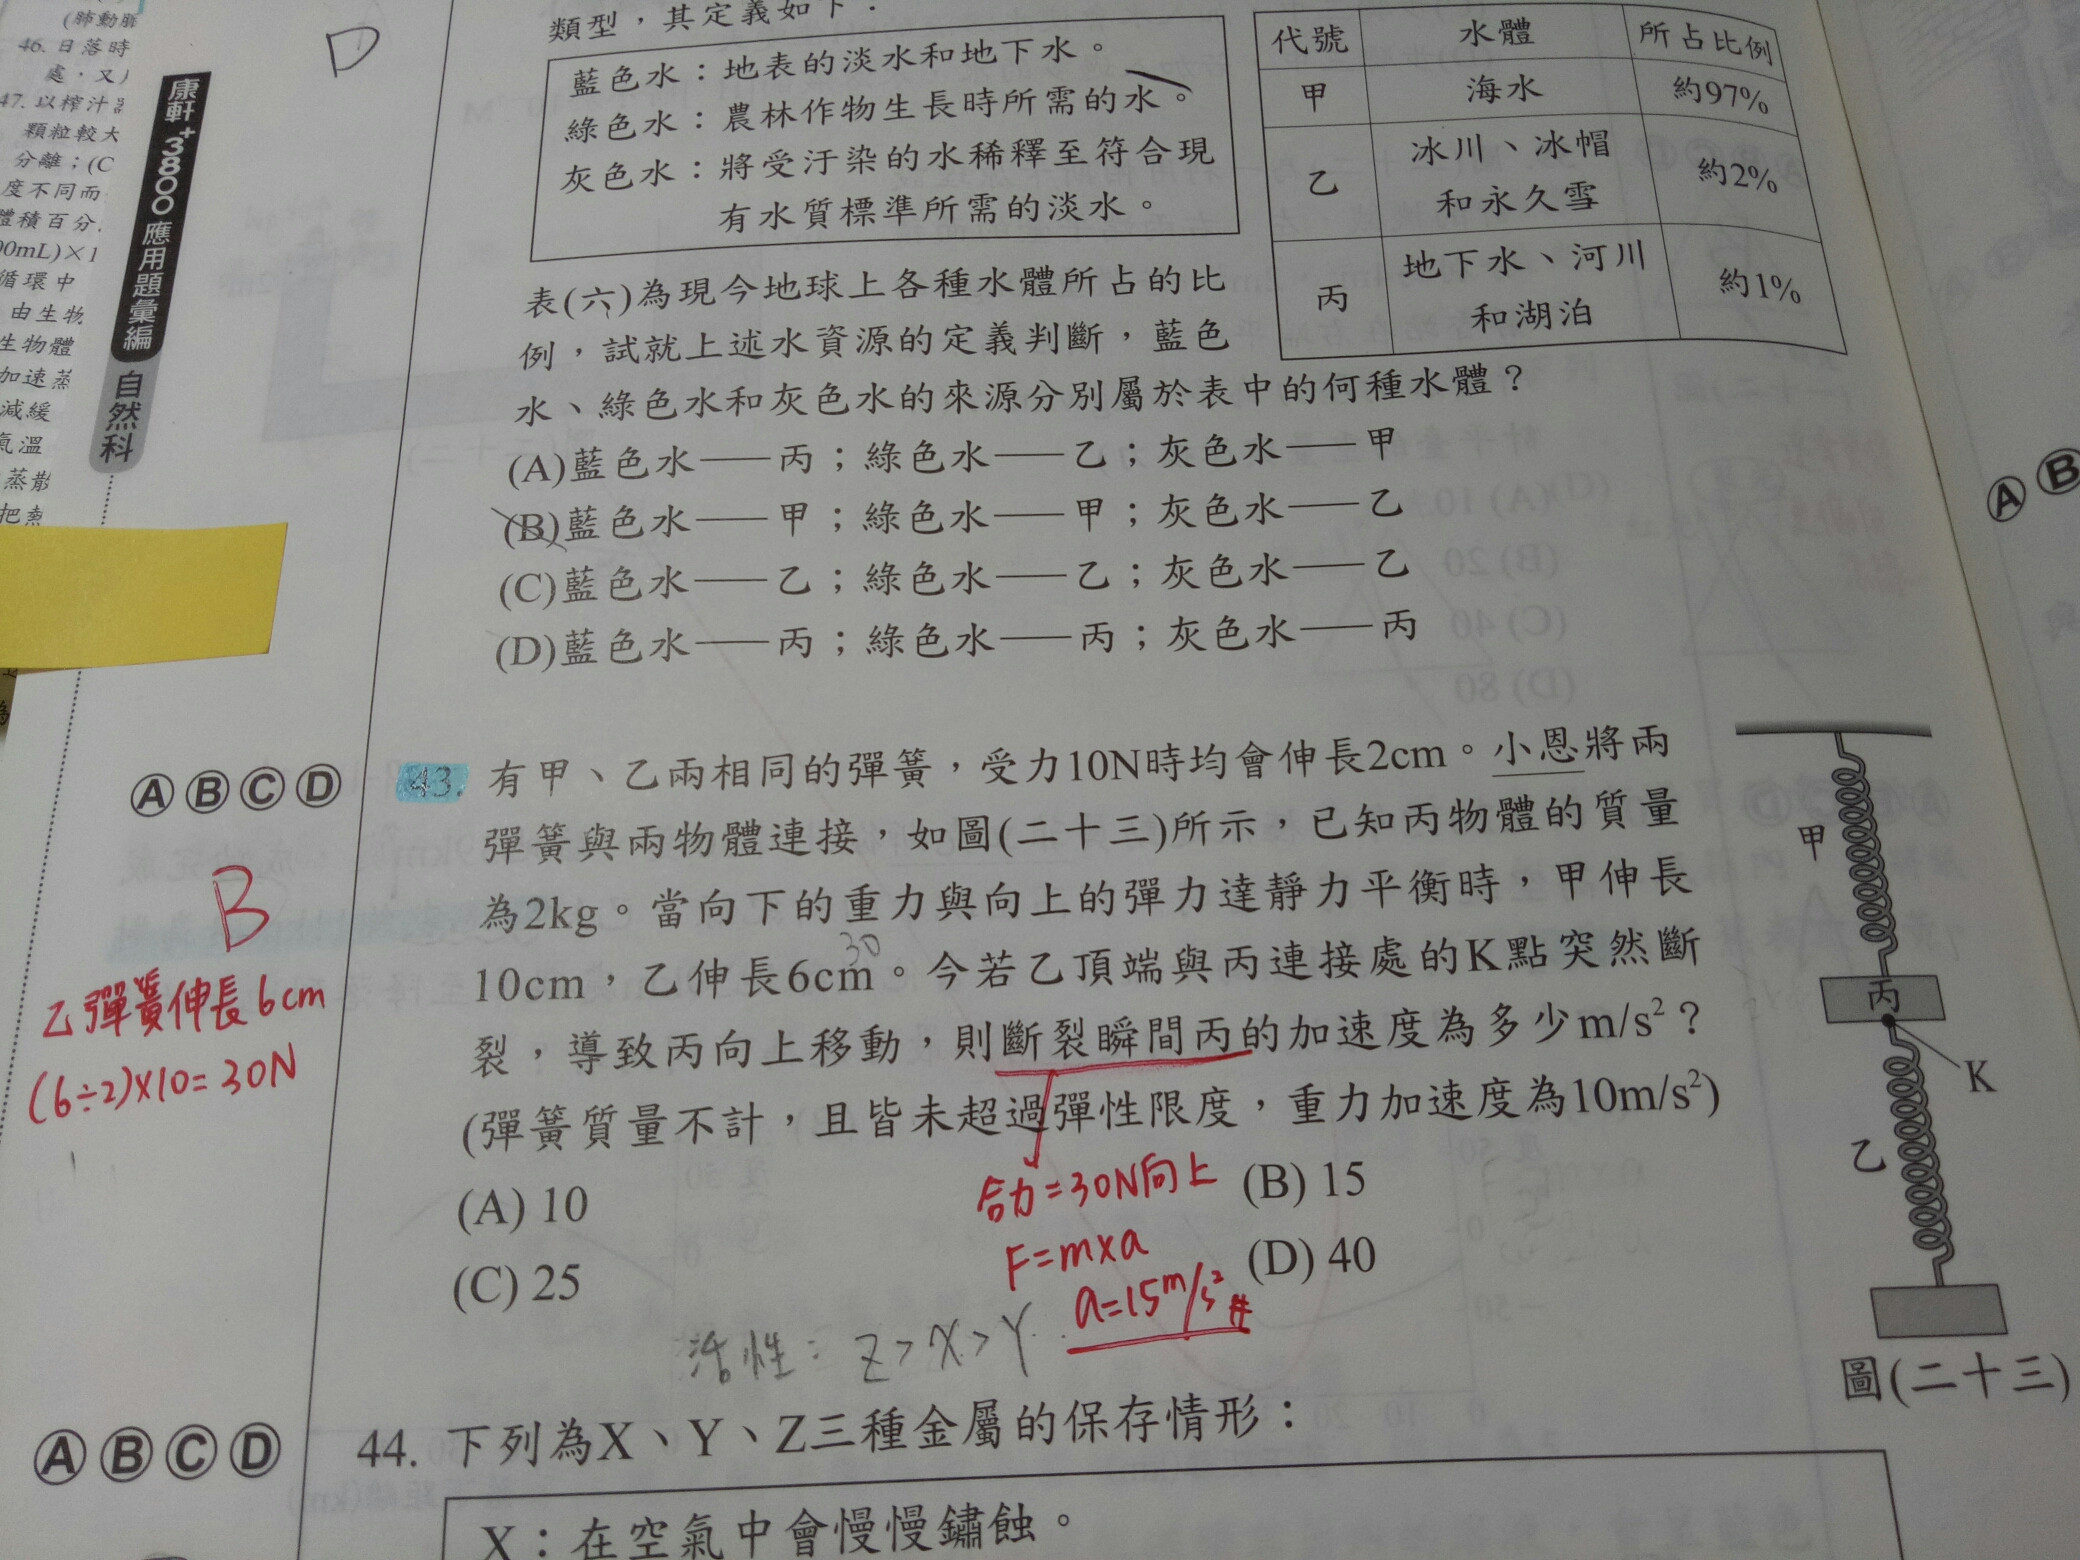 (肺動脈
46. 日落時
處，又
47. 以榨汁
顆粒較大
分離；(C
度不同而
體積百分
00mL)×1
循環中
由生物
生物體
加速蒸
減緩
氣溫
蒸散
把
康軒+3800應用題彙編
自然科
D
類型，其定義如下：
藍色水：地表的淡水和地下水。
綠色水：農林作物生長時所需的水。
灰色水：將受汙染的水稀釋至符合現
有水質標準所需的淡水。
代號 水體 所占比例
甲 海水 約97%
乙 冰川、冰帽和永久雪 約2%
丙 地下水、河川和湖泊 約1%
表(六)為現今地球上各種水體所占的比
例，試就上述水資源的定義判斷，藍色
水、綠色水和灰色水的來源分別屬於表中的何種水體？
(A)藍色水——丙；綠色水——乙；灰色水——甲
(B)藍色水——甲；綠色水——甲；灰色水——乙
(C)藍色水——乙；綠色水——乙；灰色水——乙
(D)藍色水——丙；綠色水——丙；灰色水——丙
A B
A B C D
43. 有甲、乙兩相同的彈簧，受力10N時均會伸長2cm。小恩將兩
彈簧與兩物體連接，如圖(二十三)所示，已知丙物體的質量
為2kg。當向下的重力與向上的彈力達靜力平衡時，甲伸長
30
10cm，乙伸長6cm。今若乙頂端與丙連接處的K點突然斷
裂，導致丙向上移動，則斷裂瞬間丙的加速度為多少m/s²？
(彈簧質量不計，且皆未超過彈性限度，重力加速度為10m/s²)
(A) 10
(B) 15
(C) 25
(D) 40
B
乙彈簧伸長6cm
(6÷2)×10=30N
合力=30N向上
F=m×a
a=15m/s² #
甲
丙
K
乙
圖(二十三)
活性：Z>X>Y
A B C D
44. 下列為X、Y、Z三種金屬的保存情形：
X：在空氣中會慢慢鏽蝕。